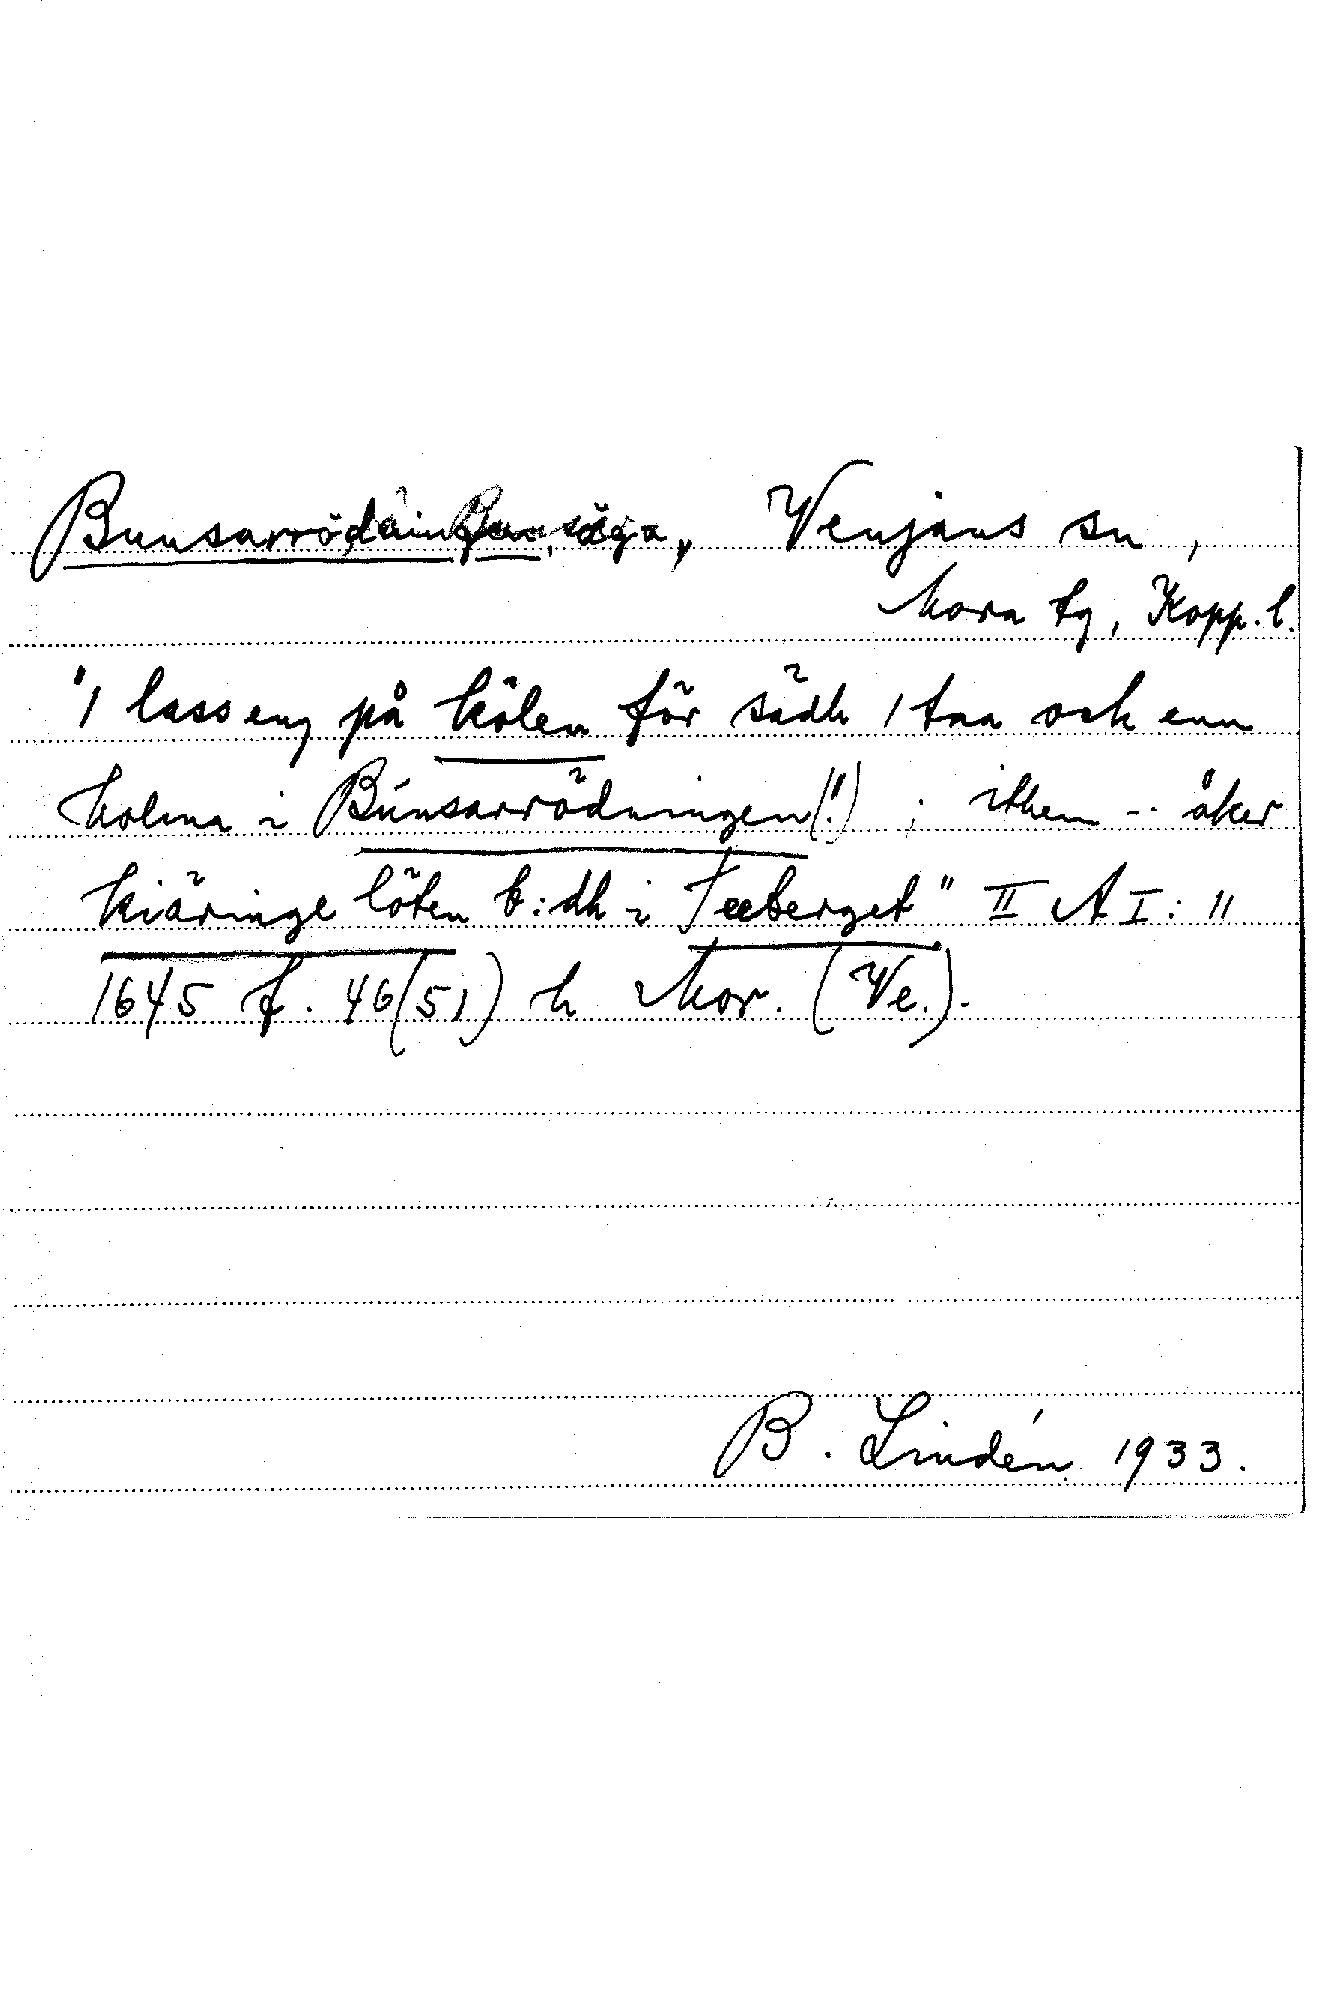 Bunsarrödningen, äga, Venjans sn,
Mora tg, Kopp. l.
"1 lass eng på kölen för sädh 1 taa och enn
holma i Búnsarrödningen(!) ; ithem -- åker
kiäringe löten b:dh i Teeberget" II A I: 11
1645 f. 46(51) h Mor. (Ve.).
B. Lindén 1933.